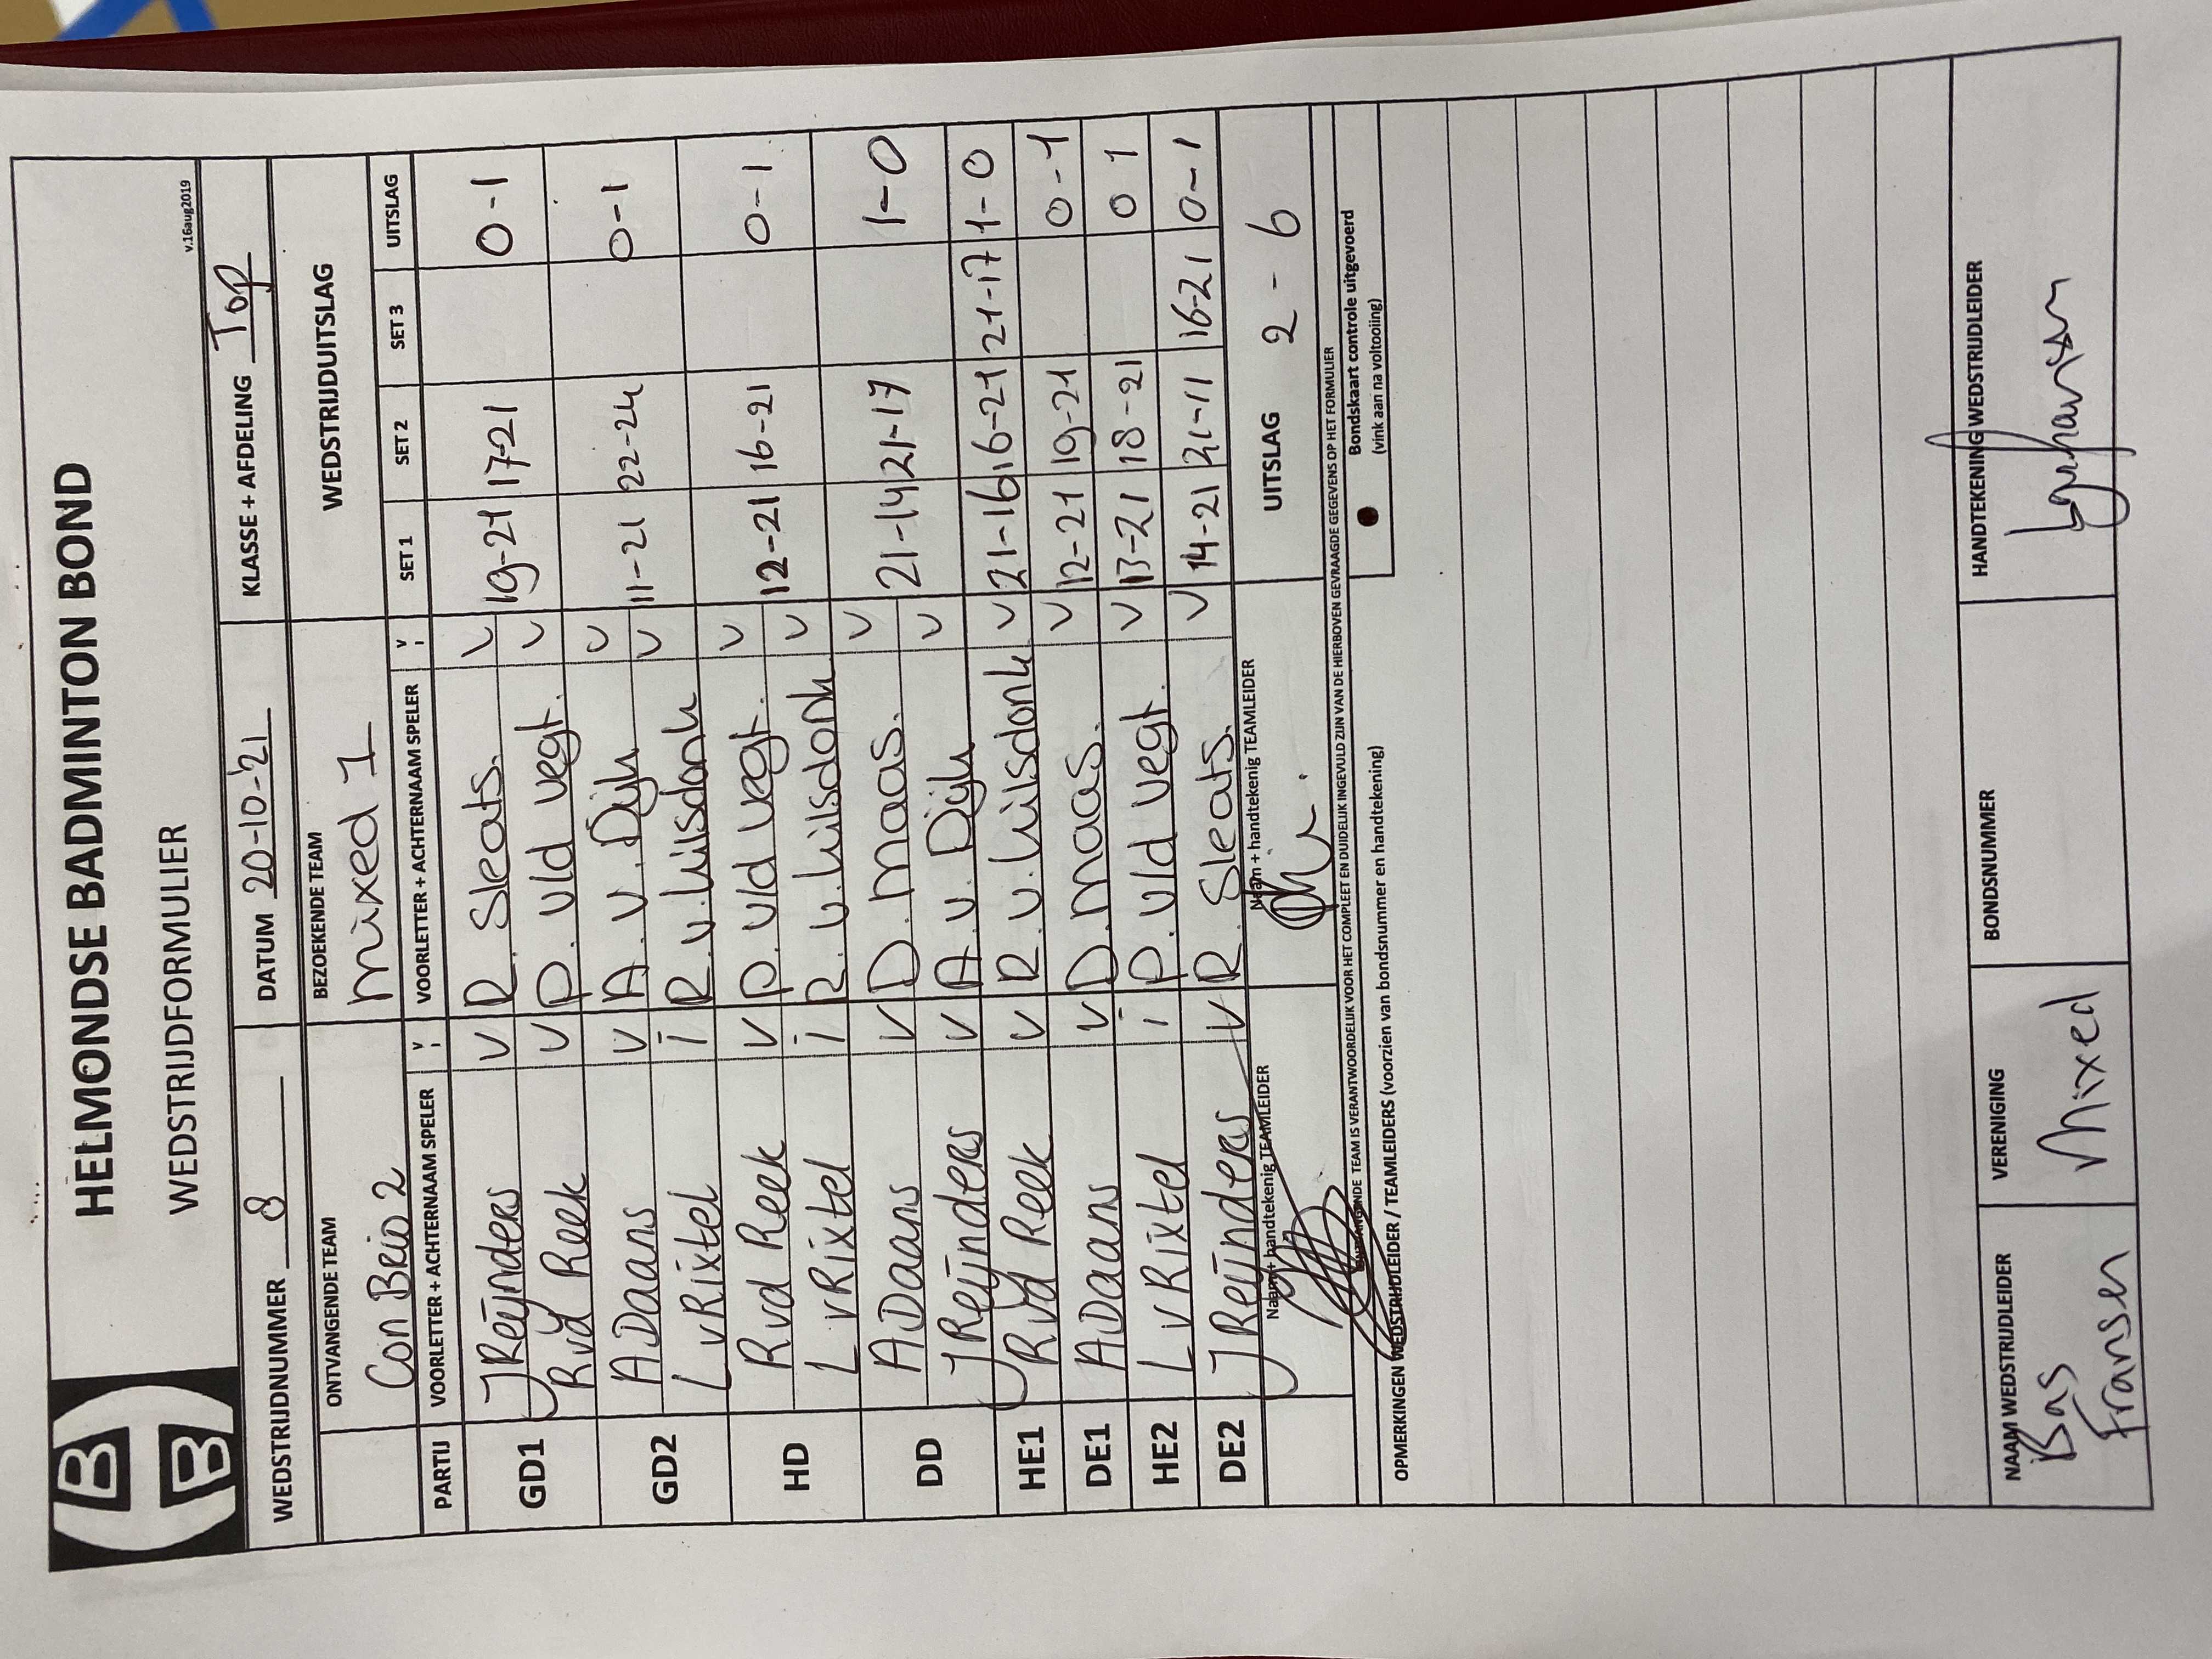 HELMONDSE BADMINTON BOND
WEDSTRIJDFORMULIER
v.16aug2019
WEDSTRIJDNUMMER 8 DATUM 20-10-'21 KLASSE + AFDELING Top
ONTVANGENDE TEAM BEZOEKENDE TEAM WEDSTRIJDUITSLAG
Con Brio 2 mixed 1
PARTIJ VOORLETTER + ACHTERNAAM SPELER V i VOORLETTER + ACHTERNAAM SPELER V i SET 1 SET 2 SET 3 UITSLAG
GD1 J Reijnders V R. Sleats. V 19-21 17-21 0-1
R vd Reek V P. v/d vegt. V
GD2 A Daans V A. v. Dijk V 11-21 22-24 0-1
L v Rixtel i R. v. Lilsdonk V
HD R vd Reek V P. v/d vegt. V 12-21 16-21 0-1
L v Rixtel i R. v. Lilsdonk V
DD A Daans V D. maas. V 21-14 21-17 1-0
J Reijnders V A. v. Dijk V
HE1 R vd Reek V R. v. Lilsdonk V 21-16 16-21 21-17 1-0
DE1 A Daans V D. maas. V 12-21 19-21 0-1
HE2 L v Rixtel i P. v/d vegt. V 13-21 18-21 0 1
DE2 J Reijnders V R. Sleats. V 14-21 21-11 16-21 0-1
Naam + handtekenig TEAMLEIDER Naam + handtekenig TEAMLEIDER UITSLAG 2 - 6
TEAM IS VERANTWOORDELIJK VOOR HET COMPLEET EN DUIDELIJK INGEVULD ZIJN VAN DE HIERBOVEN GEVRAAGDE GEGEVENS OP HET FORMULIER
OPMERKINGEN WEDSTRIJDLEIDER / TEAMLEIDERS (voorzien van bondsnummer en handtekening)
Bondskaart controle uitgevoerd
(vink aan na voltooiing)
NAAM WEDSTRIJDLEIDER VERENIGING BONDSNUMMER HANDTEKENING WEDSTRIJDLEIDER
Bas Mixed
Fransen